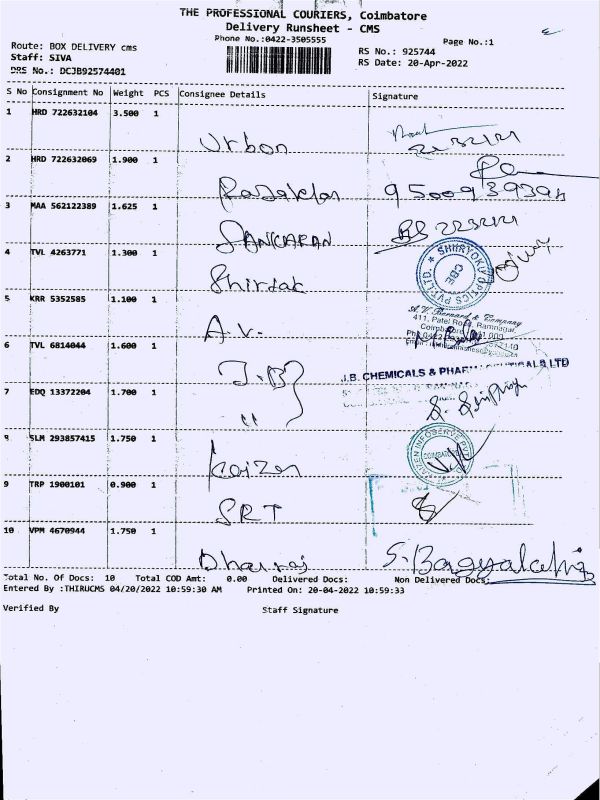 THE PROFESSIONAL COURIERS, Coimbatore
Delivery Runsheet - CMS
Phone No.:0422-3505555
Page No.:1
Route: BOX DELIVERY cms
Staff: SIVA
DRS No.: DCJB92574401
RS No.: 925744
RS Date: 20-Apr-2022
S No Consignment No Weight PCS Consignee Details Signature
1 HRD 722632104 3.500 1
Urban
2 HRD 722632069 1.900 1
3 MAA 562122389 1.625 1
SANKARAN
4 TVL 4263771 1.300 1
SHIRYOKIV OPTICS PVT. LTD.
CBE
5 KRR 5352585 1.100 1
A.V.
A.V. & Company
411, Patel Road, Ramnagar,
6 TVL 6814044 1.600 1
J.B
J.B. CHEMICALS & PHARMACEUTICALS LTD
7 EDQ 13372204 1.700 1
"
8 SLM 293857415 1.750 1
Kaizen
KAIZEN INFOSERVE PVT
9 TRP 1900101 0.900 1
SRT
10 VPM 4670944 1.750 1
Total No. Of Docs: 10 Total COD Amt: 0.00 Delivered Docs: Non Delivered Docs:
Entered By :THIRUCMS 04/20/2022 10:59:30 AM Printed On: 20-04-2022 10:59:33
Verified By Staff Signature